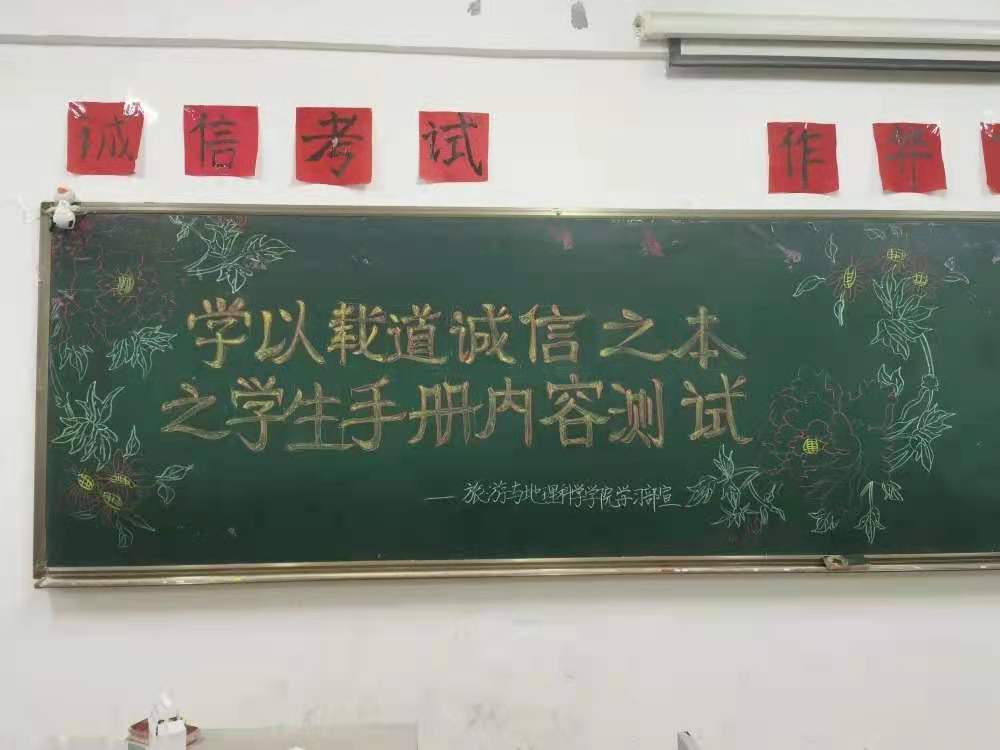 诚信考试
作弊
学以载道诚信之本
之学生手册内容测试
——旅游与地理科学学院学习部宣